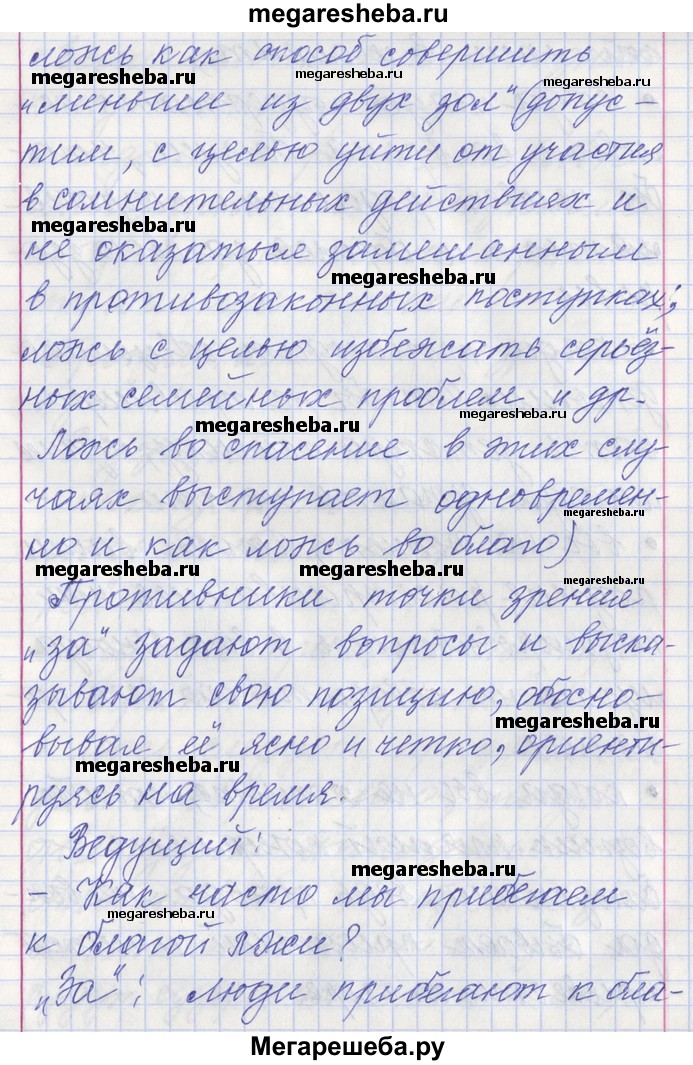 megaresheba.ru
ложь как способ совершить
megaresheba.ru megaresheba.ru
„меньшее из двух зол" (допус-
тим, с целью уйти от участия
в сомнительных действиях и
megaresheba.ru
не оказаться замешанным
megaresheba.ru
в противозаконных поступках;
ложь с целью избежать серьёз-
ных семейных проблем и др.
megaresheba.ru megaresheba.ru
Ложь во спасение в этих слу-
чаях выступает одновремен-
megaresheba.ru
но и как ложь во благо)
megaresheba.ru megaresheba.ru megaresheba.ru
Противники точки зрения
„за" задают вопросы и выска-
зывают свою позицию, обосно-
megaresheba.ru
вывая её ясно и четко, ориенти-
megaresheba.ru
руясь на время.
Ведущий:
megaresheba.ru
- Как часто мы прибегаем
megaresheba.ru
к благой лжи?
„За": люди прибегают к бла-
Мегарешеба.ру